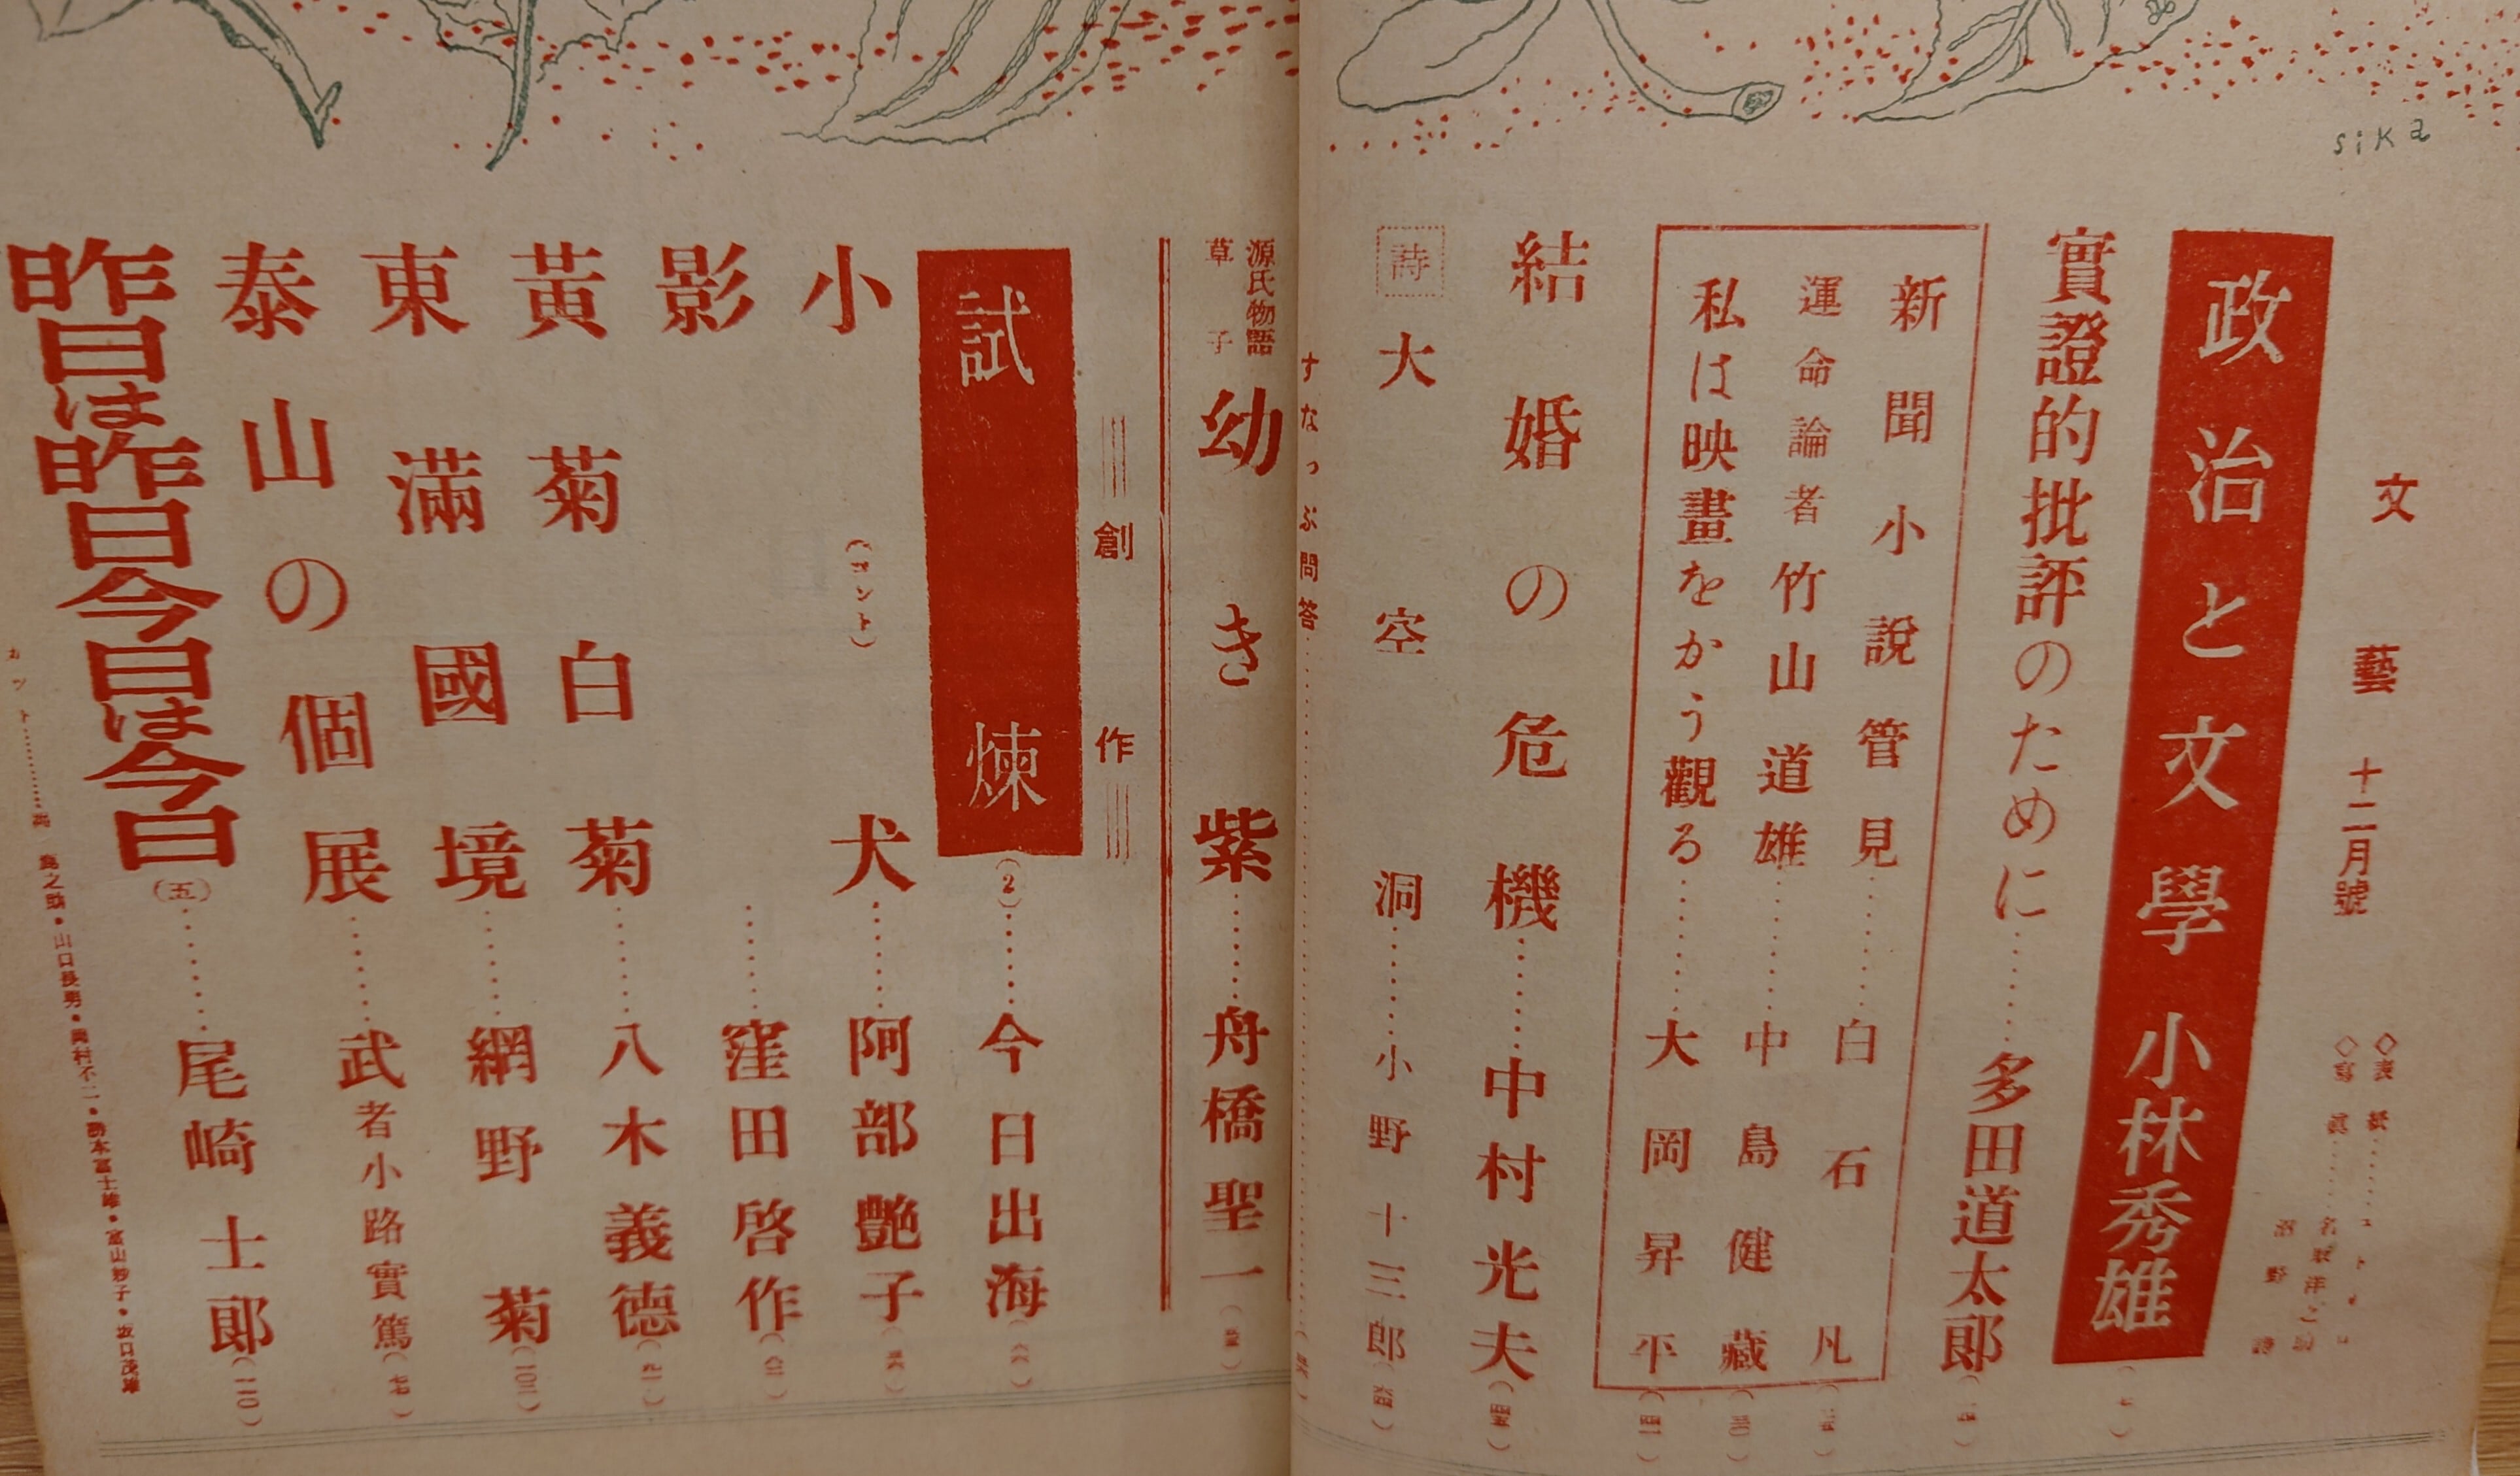 sika
文藝 十二月號
◇表紙
◇寫眞
政治と文學 小林秀雄
實證的批評のために………多田道太郎
新聞小説管見………白石凡
運命論者竹山道雄………中島健藏
私は映畫をかう觀る………大岡昇平
結婚の危機………中村光夫
詩 大空洞………小野十三郎
すなっぷ問答
源氏物語草子 幼き紫………舟橋聖一
創作
試煉(2)………今日出海
小犬………阿部艶子
(コント)
影………窪田啓作
黃菊白菊………八木義德
東滿國境………網野菊
泰山の個展………武者小路實篤
昨日は昨日今日は今日(五)………尾崎士郎
カット